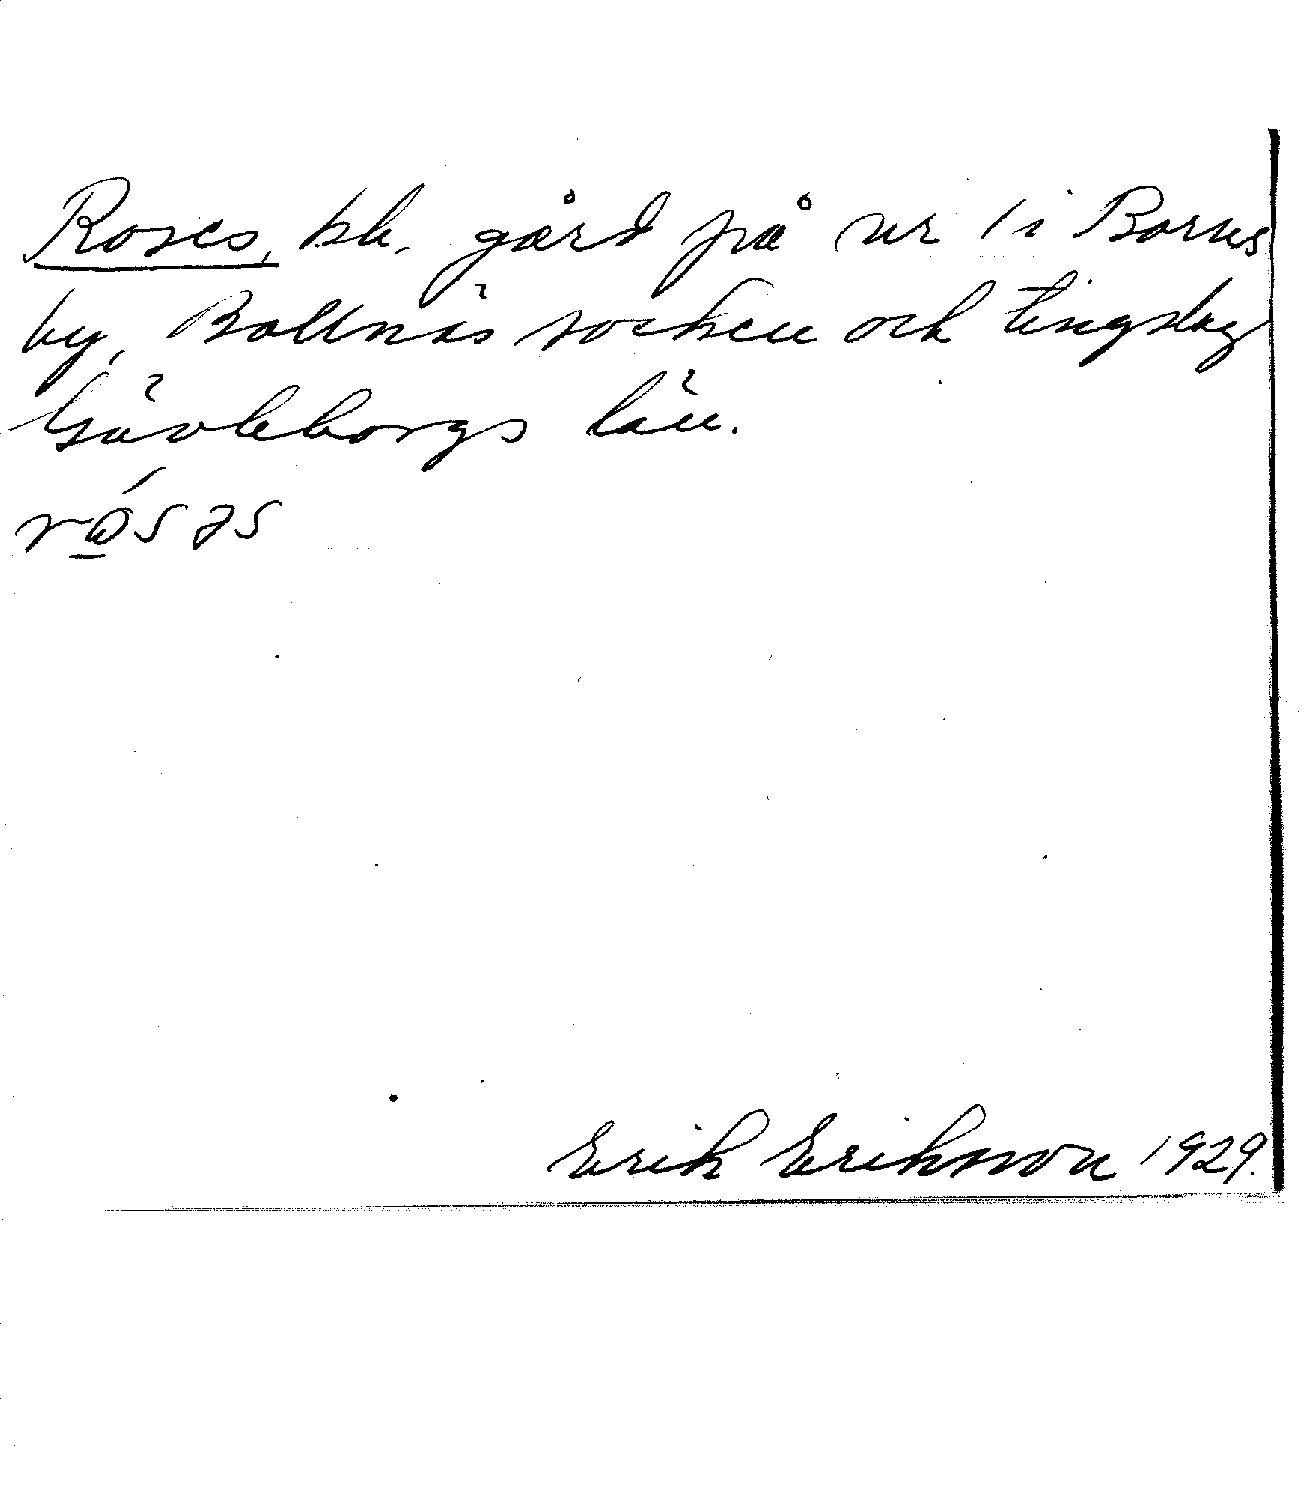 Roses, bb. gård på nr 1 i Bornes
by, Bollnäs socken och tingslag
Gävleborgs län.
rо̲́səs
Erik Eriksson 1929.